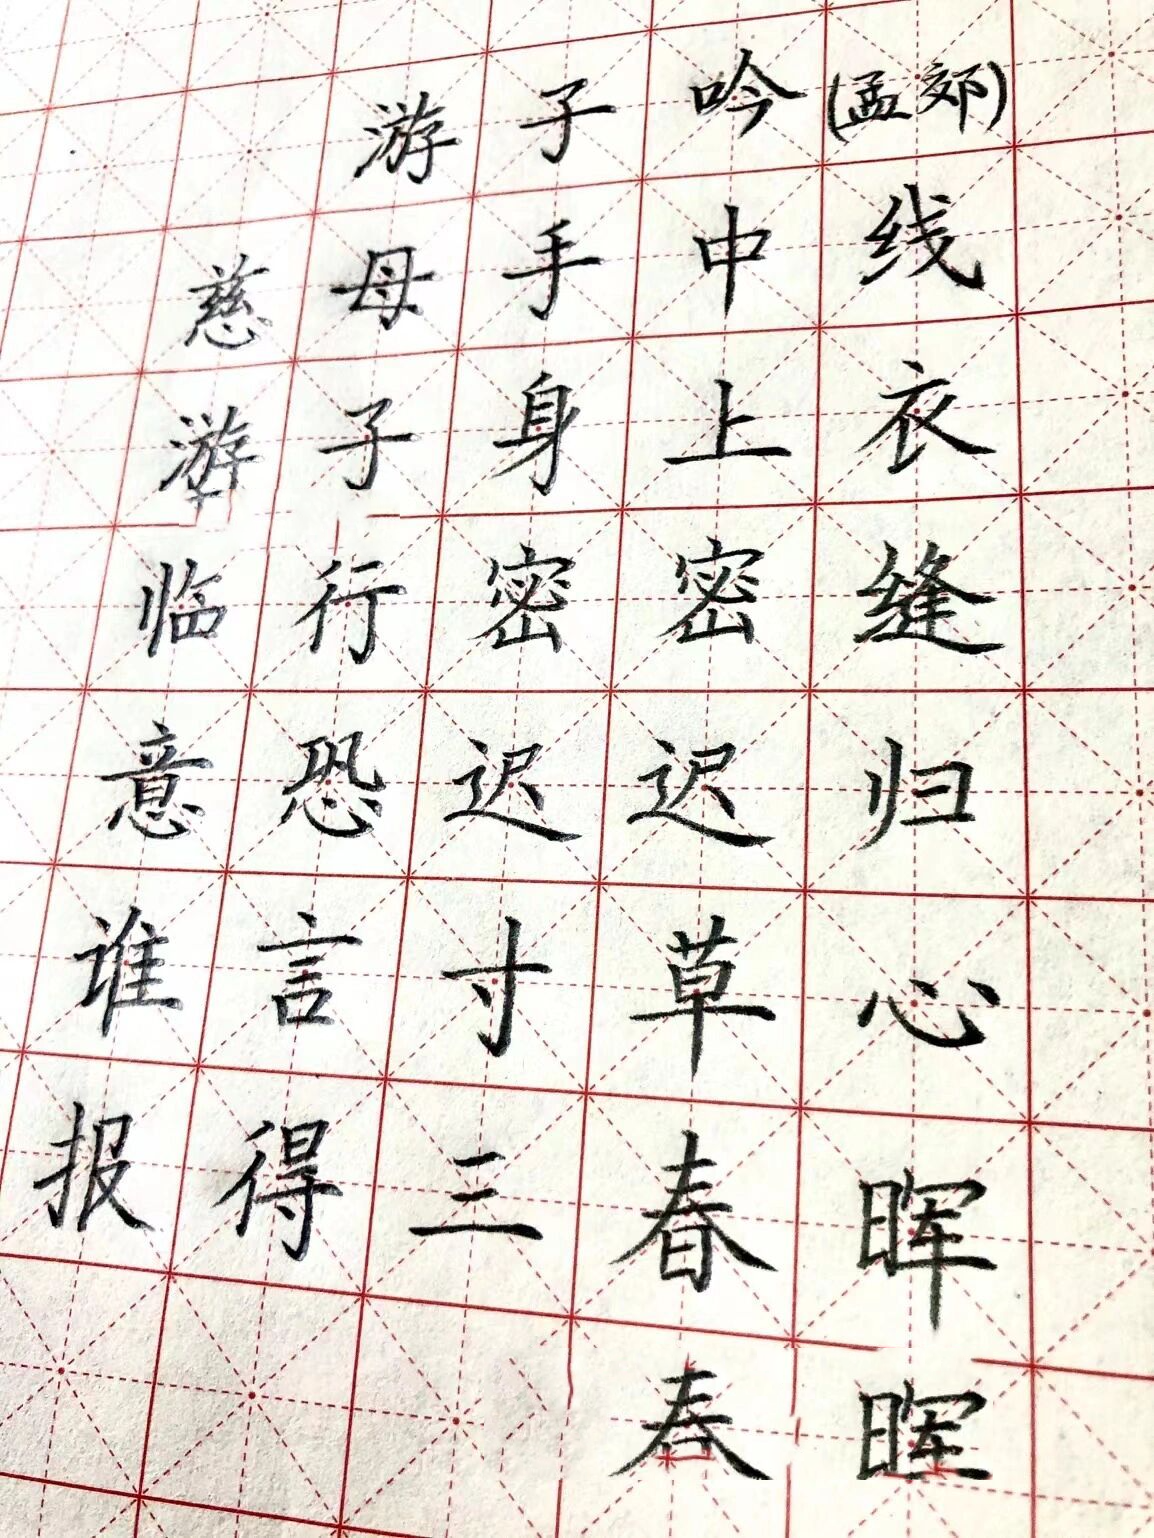 游子吟(孟郊)
慈母手中线
游子身上衣
临行密密缝
意恐迟迟归
谁言寸草心
报得三春晖
春晖